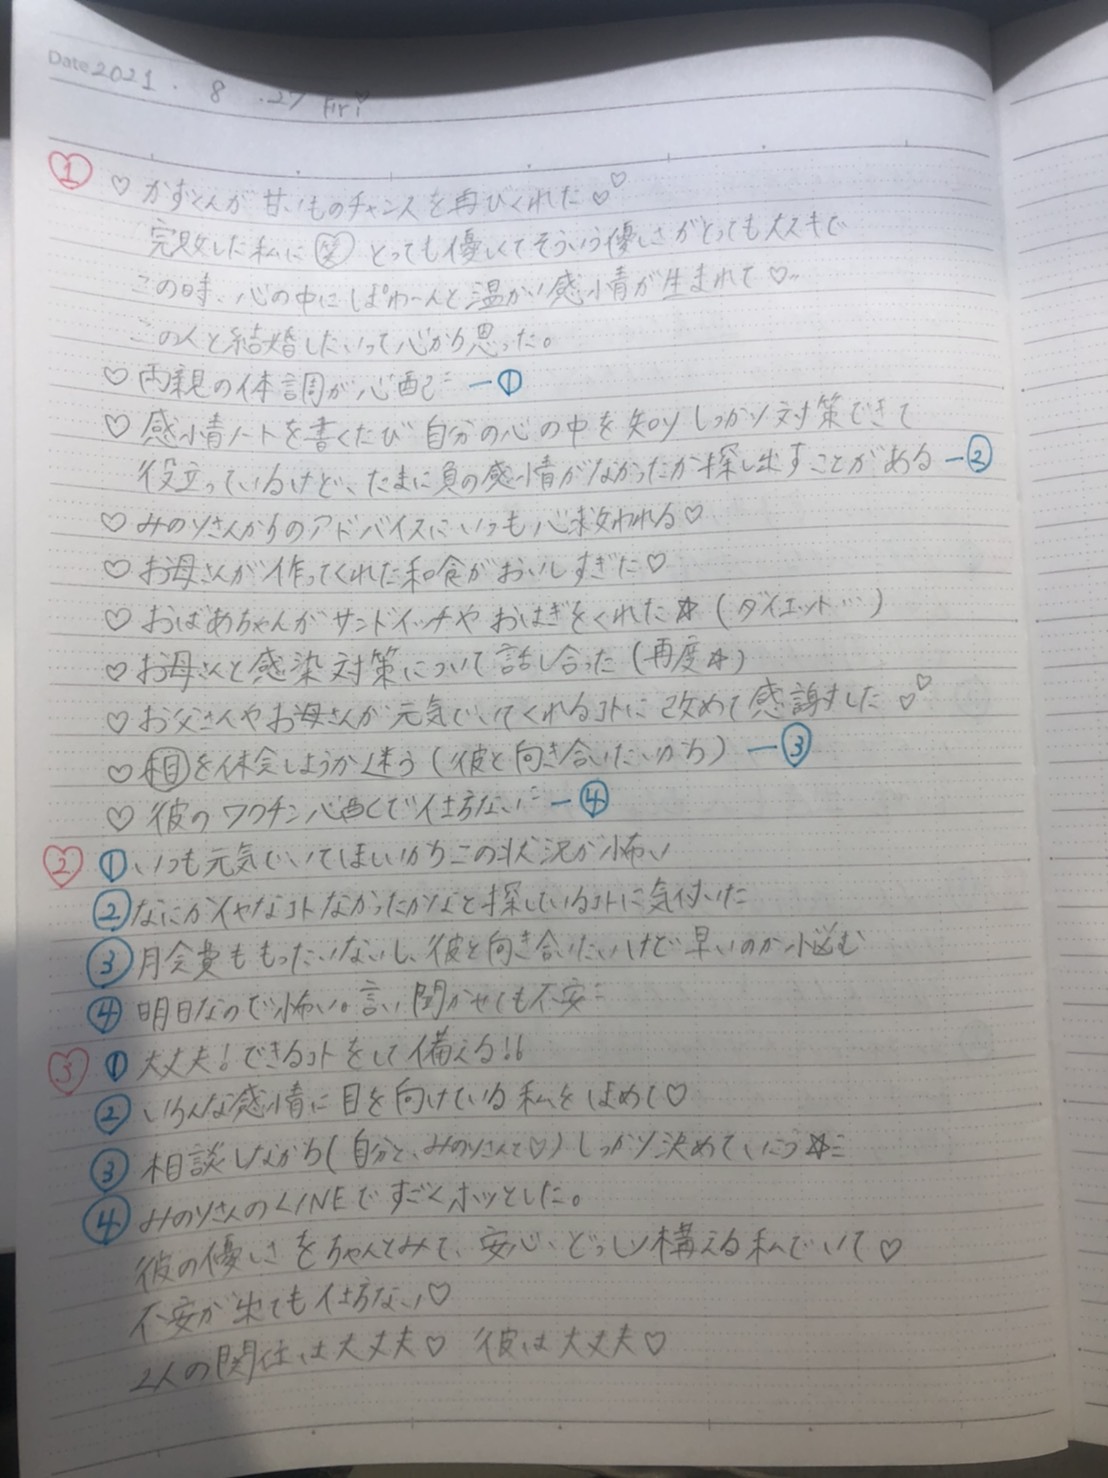 Date 2021 . 8 . 27 Fri
① ♡ かずくんが甘いものチャンスを再びくれた♡♡
完敗した私に㊗とっても優しくてそういう優しさがとっても大スキで
この時、心の中にぽわーんと温かい感情が生まれて♡
この人と結婚したいって心から思った。
♡ 両親の体調が心配 ー①
♡ 感情ノートを書くたび自分の心の中を知りしっかり対策できて
役立っているけど、たまに負の感情がなかったか探し出すことがある ー②
♡ みのりさんからのアドバイスにいつも心救われる♡
♡ お母さんが作ってくれた和食がおいしすぎた♡
♡ おばあちゃんがサンドイッチやおはぎをくれた☆(ダイエット…)
♡ お母さんと感染対策について話し合った(再度☆)
♡ お父さんやお母さんが元気でいてくれるコトに改めて感謝した♡♡
♡ を休会しようか迷う(彼と向き合いたいから) ー③
♡ 彼のワクチン心配で仕方ない ー④
② ① いつも元気でいてほしいからこの状況が怖い
② なにかイヤなコトなかったかなと探しているコトに気付いた
③ 月会費ももったいないし、彼と向き合いたいけど早いのか悩む
④ 明日なので怖い。言い聞かせても不安
③ ① 大丈夫!できるコトをして備える!!
② いろんな感情に目を向けている私をほめて♡
③ 相談しながら(自分と、みのりさんて♡)しっかり決めていこう☆
④ みのりさんのLINEですごくホッとした。
彼の優しさをちゃんとみて、安心、どっしり構える私でいて♡
不安が出ても仕方ない♡
2人の関係は大丈夫♡ 彼は大丈夫♡